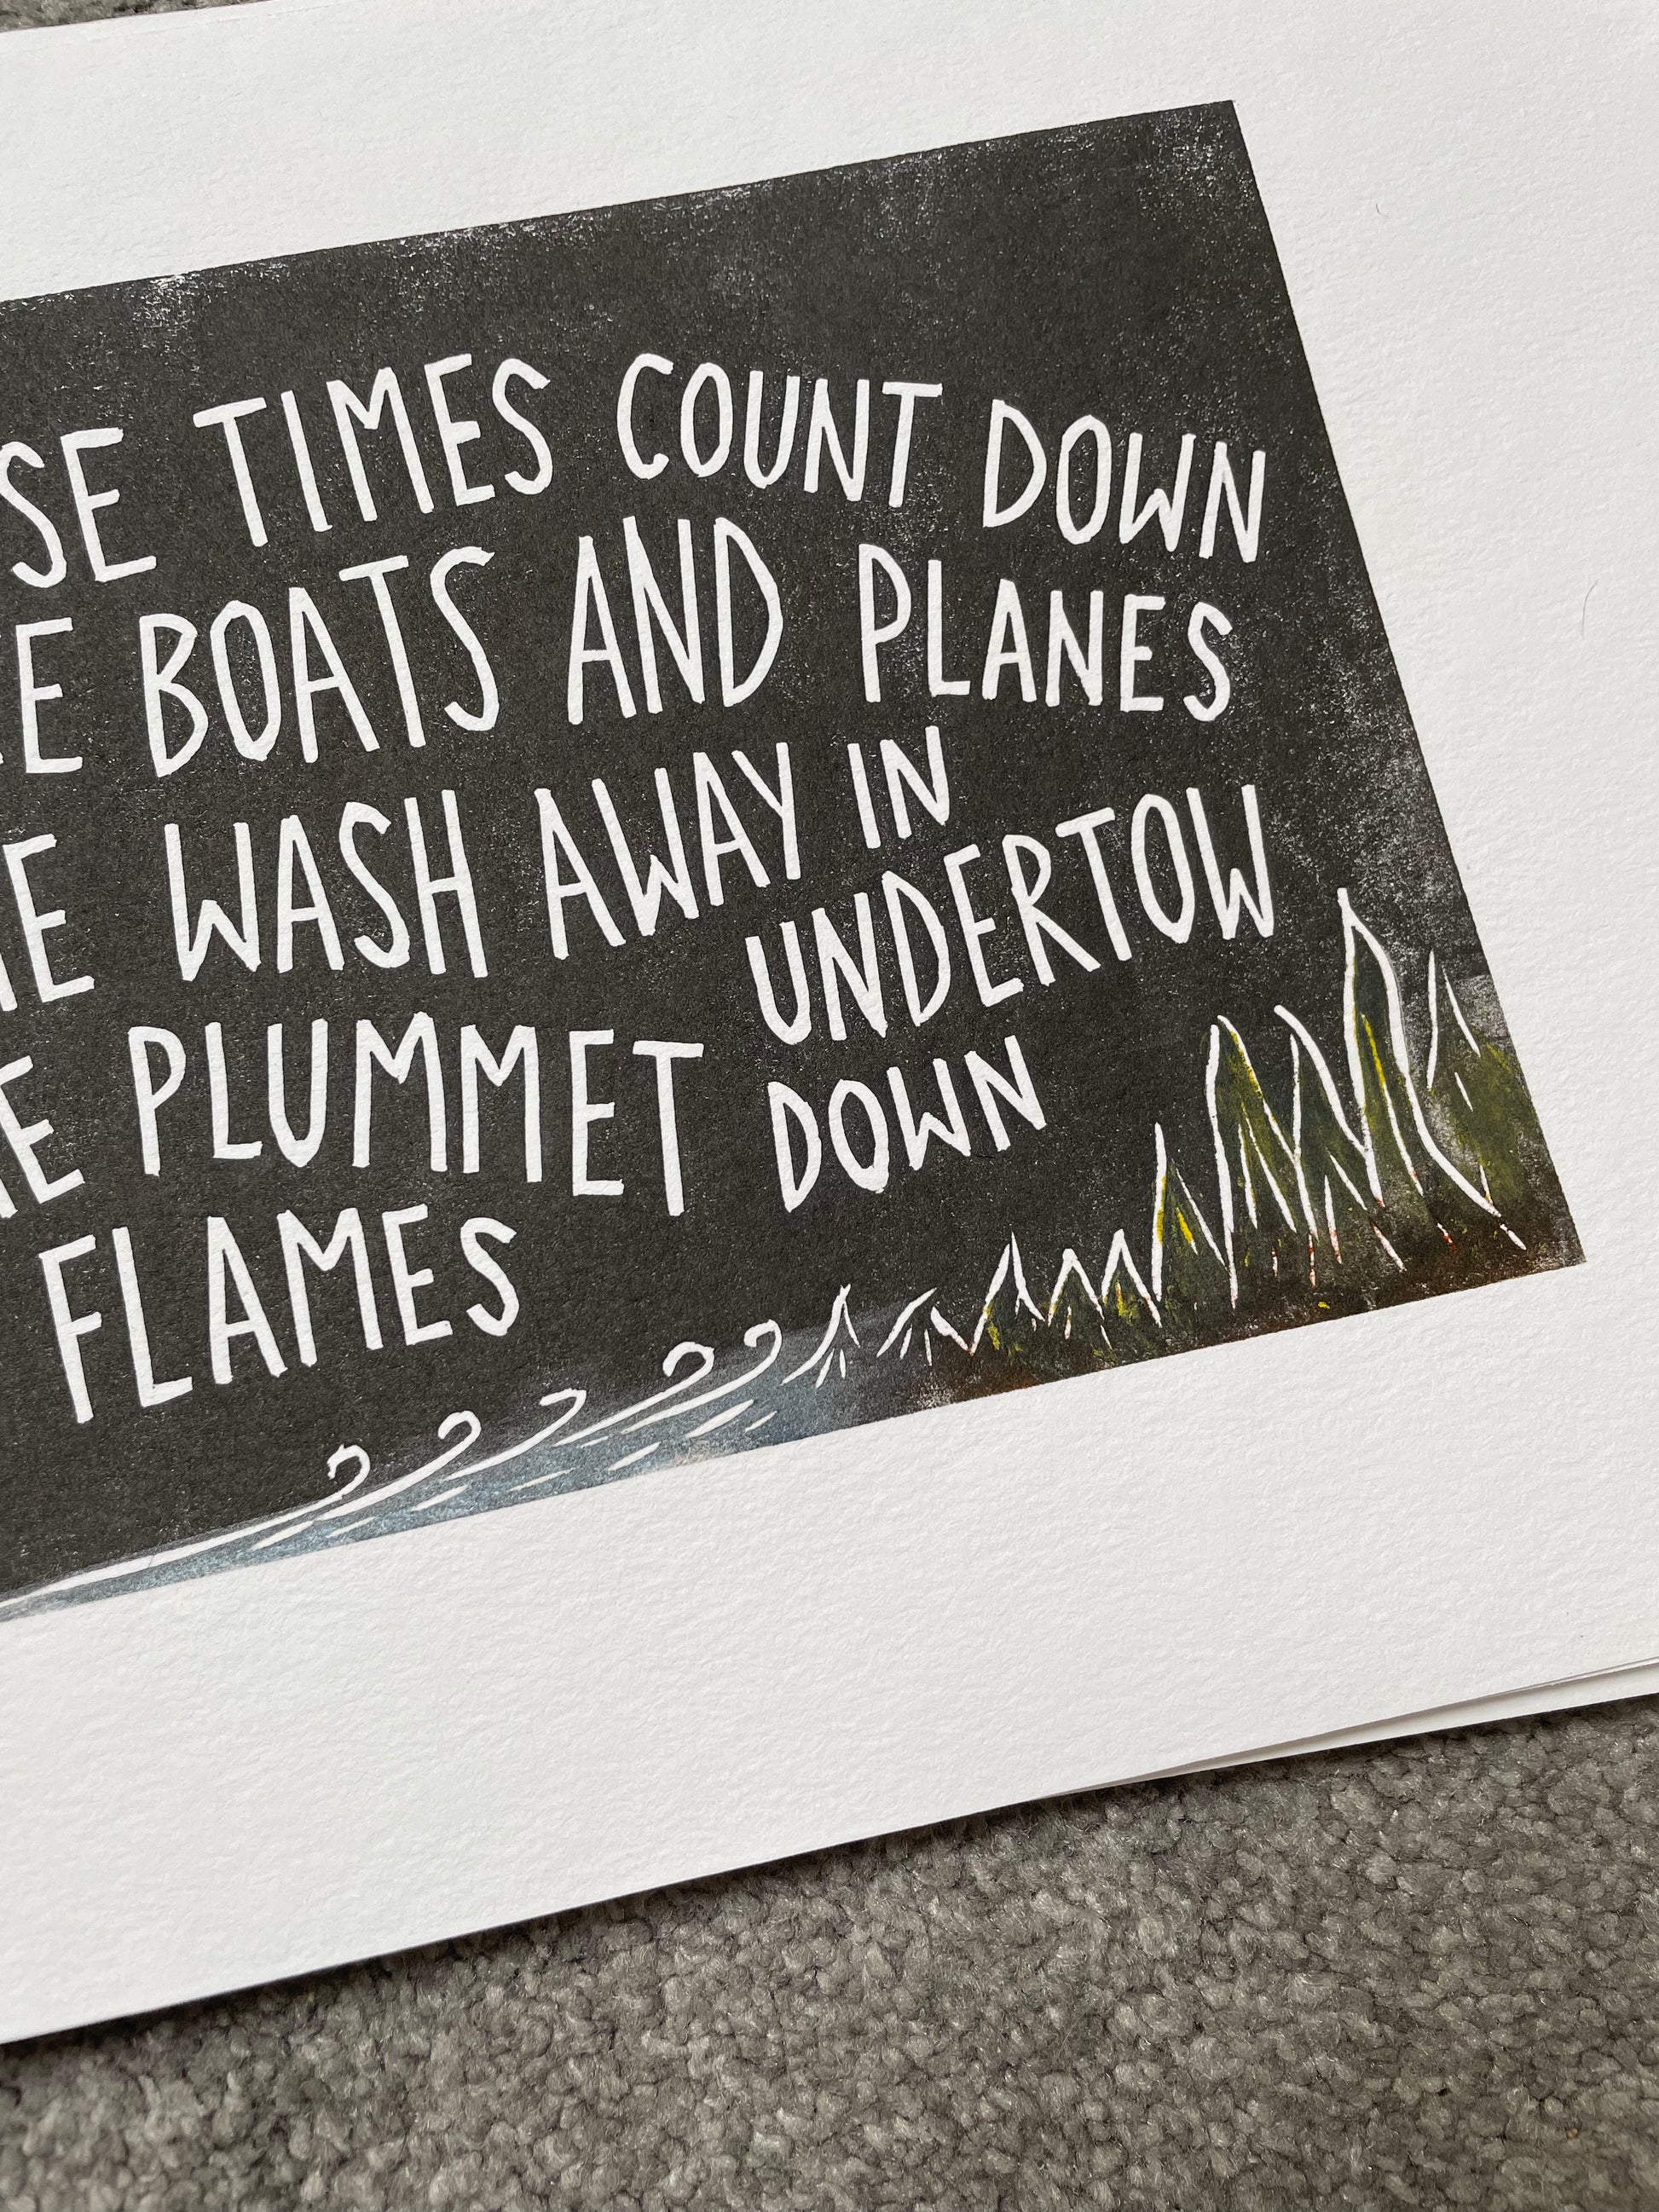 SE TIMES COUNT DOWN
E BOATS AND PLANES
E WASH AWAY IN
UNDERTOW
E PLUMMET DOWN
FLAMES